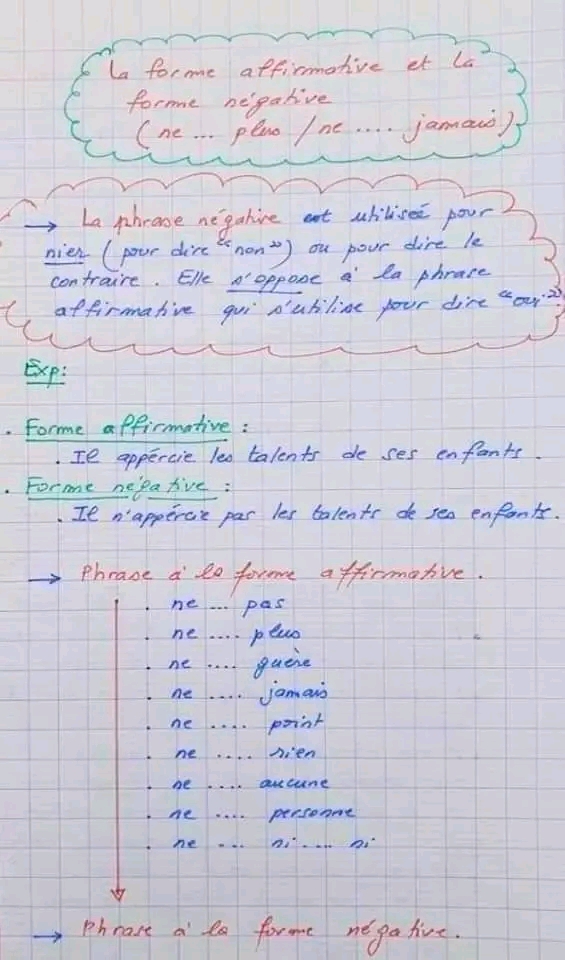 La forme affirmative et la
forme négative
(ne ... plus / ne .... jamais)
→ La phrase négative est utilisée pour
nier (pour dire "non") ou pour dire le
contraire. Elle s'oppose à la phrase
affirmative qui s'utilise pour dire "oui"
Exp:
. Forme affirmative :
. Il appércie les talents de ses enfants.
. Forme négative :
. Il n'appércie pas les talents de ses enfants.
→ Phrase à la forme affirmative.
. ne ... pas
. ne .... plus
. ne .... guère
. ne .... jamais
. ne .... point
. ne .... rien
. ne .... aucune
. ne .... personne
. ne ... ni .... ni
→ Phrase à la forme négative.